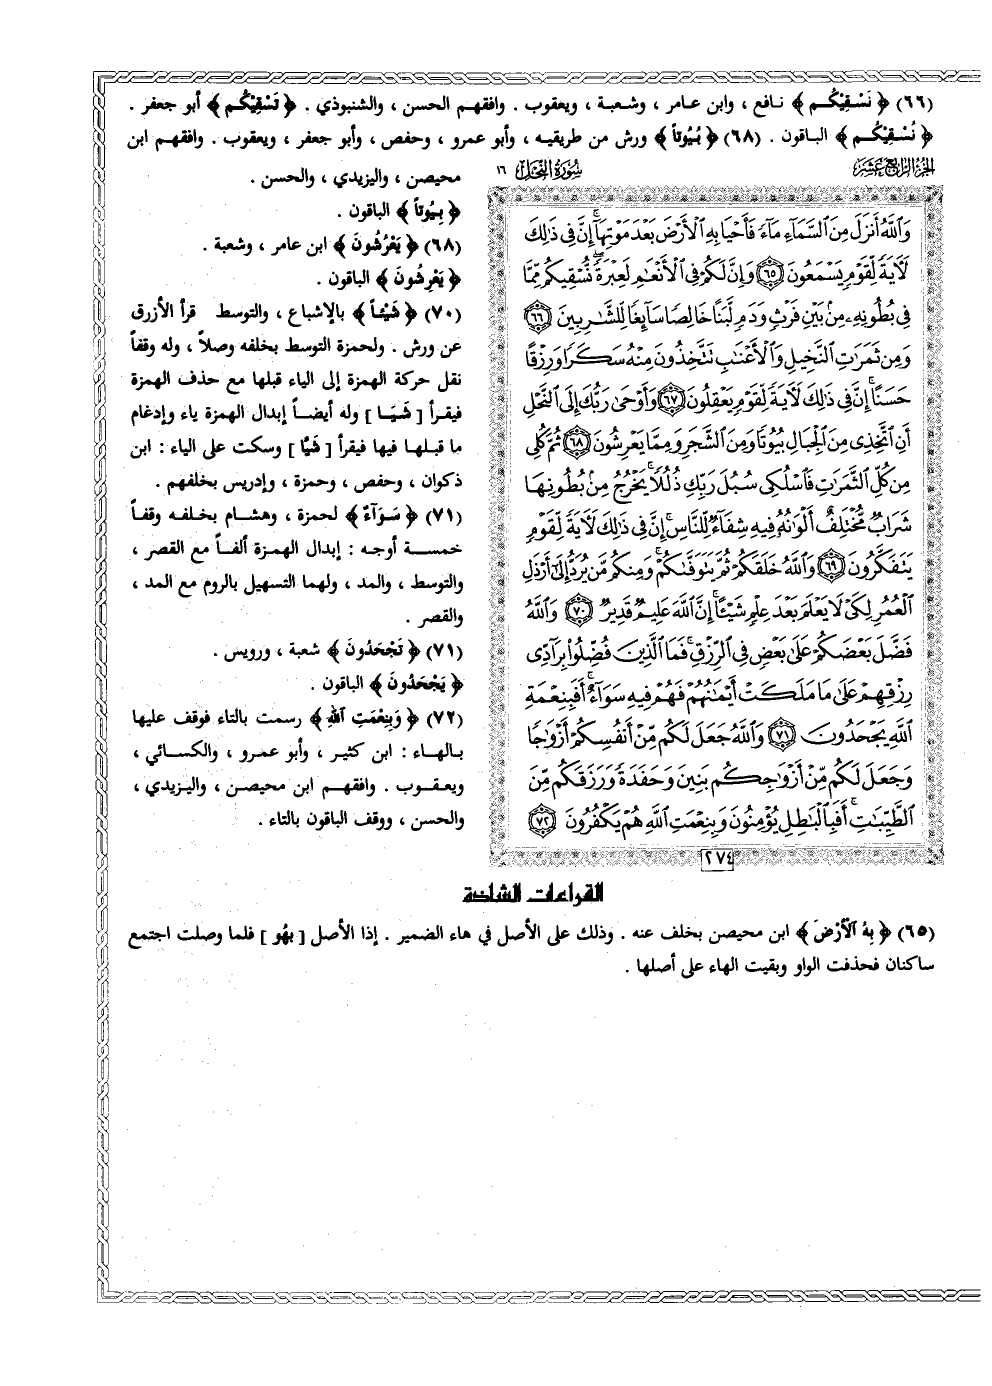 (٦٦) ﴿ نَسْقِيْكُم ﴾ نافع ، وابن عامر ، وشعبة ، ويعقوب . وافقهم الحسن ، والشنبوذي . ﴿ تَسْقِيْكُم ﴾ أبو جعفر .
﴿ نُسْقِيْكُم ﴾ الباقون . (٦٨) ﴿ بُيُوتاً ﴾ ورش من طريقيه ، وأبو عمرو ، وحفص ، وأبو جعفر ، ويعقوب . وافقهم ابن
محيصن ، واليزيدي ، والحسن .
﴿ بِيُوتاً ﴾ الباقون .
(٦٨) ﴿ يَعْرُشُونَ ﴾ ابن عامر ، وشعبة .
﴿ يَعْرِشُونَ ﴾ الباقون .
(٧٠) ﴿ شَيْئاً ﴾ بالإشباع ، والتوسط قرأ الأزرق
عن ورش . ولحمزة التوسط بخلفه وصلاً ، وله وقفاً
نقل حركة الهمزة إلى الياء قبلها مع حذف الهمزة
فيقرأ [ شَيَا ] وله أيضاً إبدال الهمزة ياء وإدغام
ما قبلها فيها فيقرأ [ شَيًّا ] وسكت على الياء : ابن
ذكوان ، وحفص ، وحمزة ، وإدريس بخلفهم .
(٧١) ﴿ سَوَآءٌ ﴾ لحمزة ، وهشام بخلفه وقفاً
خمسة أوجه : إبدال الهمزة ألفاً مع القصر ،
والتوسط ، والمد ، ولهما التسهيل بالروم مع المد ،
والقصر .
(٧١) ﴿ تَجْحَدُونَ ﴾ شعبة ، ورويس .
﴿ يَجْحَدُونَ ﴾ الباقون .
(٧٢) ﴿ وَبِنِعْمَتِ اللهِ ﴾ رسمت بالتاء فوقف عليها
بالهاء : ابن كثير ، وأبو عمرو ، والكسائي ،
ويعقوب . وافقهم ابن محيصن ، واليزيدي ،
والحسن ، ووقف الباقون بالتاء .
الجزء الرابع عشر
سورة النحل ١٦
وَٱللَّهُ أَنزَلَ مِنَ ٱلسَّمَآءِ مَآءً فَأَحْيَا بِهِ ٱلْأَرْضَ بَعْدَ مَوْتِهَآ إِنَّ فِى ذَٰلِكَ
لَأٓيَةً لِّقَوْمٍ يَسْمَعُونَ ٦٥ وَإِنَّ لَكُمْ فِى ٱلْأَنْعَٰمِ لَعِبْرَةً نُّسْقِيكُم مِّمَّا
فِى بُطُونِهِۦ مِنۢ بَيْنِ فَرْثٍ وَدَمٍ لَّبَنًا خَالِصًا سَآئِغًا لِّلشَّٰرِبِينَ ٦٦
وَمِن ثَمَرَٰتِ ٱلنَّخِيلِ وَٱلْأَعْنَٰبِ تَتَّخِذُونَ مِنْهُ سَكَرًا وَرِزْقًا
حَسَنًا إِنَّ فِى ذَٰلِكَ لَأٓيَةً لِّقَوْمٍ يَعْقِلُونَ ٦٧ وَأَوْحَىٰ رَبُّكَ إِلَى ٱلنَّحْلِ
أَنِ ٱتَّخِذِى مِنَ ٱلْجِبَالِ بُيُوتًا وَمِنَ ٱلشَّجَرِ وَمِمَّا يَعْرِشُونَ ٦٨ ثُمَّ كُلِى
مِن كُلِّ ٱلثَّمَرَٰتِ فَٱسْلُكِى سُبُلَ رَبِّكِ ذُلُلًا يَخْرُجُ مِنۢ بُطُونِهَا
شَرَابٌ مُّخْتَلِفٌ أَلْوَٰنُهُۥ فِيهِ شِفَآءٌ لِّلنَّاسِ إِنَّ فِى ذَٰلِكَ لَأٓيَةً لِّقَوْمٍ
يَتَفَكَّرُونَ ٦٩ وَٱللَّهُ خَلَقَكُمْ ثُمَّ يَتَوَفَّىٰكُمْ وَمِنكُم مَّن يُرَدُّ إِلَىٰٓ أَرْذَلِ
ٱلْعُمُرِ لِكَىْ لَا يَعْلَمَ بَعْدَ عِلْمٍ شَيْـًٔا إِنَّ ٱللَّهَ عَلِيمٌ قَدِيرٌ ٧٠ وَٱللَّهُ
فَضَّلَ بَعْضَكُمْ عَلَىٰ بَعْضٍ فِى ٱلرِّزْقِ فَمَا ٱلَّذِينَ فُضِّلُوا۟ بِرَآدِّى
رِزْقِهِمْ عَلَىٰ مَا مَلَكَتْ أَيْمَٰنُهُمْ فَهُمْ فِيهِ سَوَآءٌ أَفَبِنِعْمَةِ
ٱللَّهِ يَجْحَدُونَ ٧١ وَٱللَّهُ جَعَلَ لَكُم مِّنْ أَنفُسِكُمْ أَزْوَٰجًا
وَجَعَلَ لَكُم مِّنْ أَزْوَٰجِكُم بَنِينَ وَحَفَدَةً وَرَزَقَكُم مِّنَ
ٱلطَّيِّبَٰتِ أَفَبِٱلْبَٰطِلِ يُؤْمِنُونَ وَبِنِعْمَتِ ٱللَّهِ هُمْ يَكْفُرُونَ ٧٢
٢٧٤
القراءات الشاذة
(٦٥) ﴿ بِهُ الْأَرْضَ ﴾ ابن محيصن بخلف عنه . وذلك على الأصل في هاء الضمير . إذا الأصل [ بهُو ] فلما وصلت اجتمع
ساكنان فحذفت الواو وبقيت الهاء على أصلها .